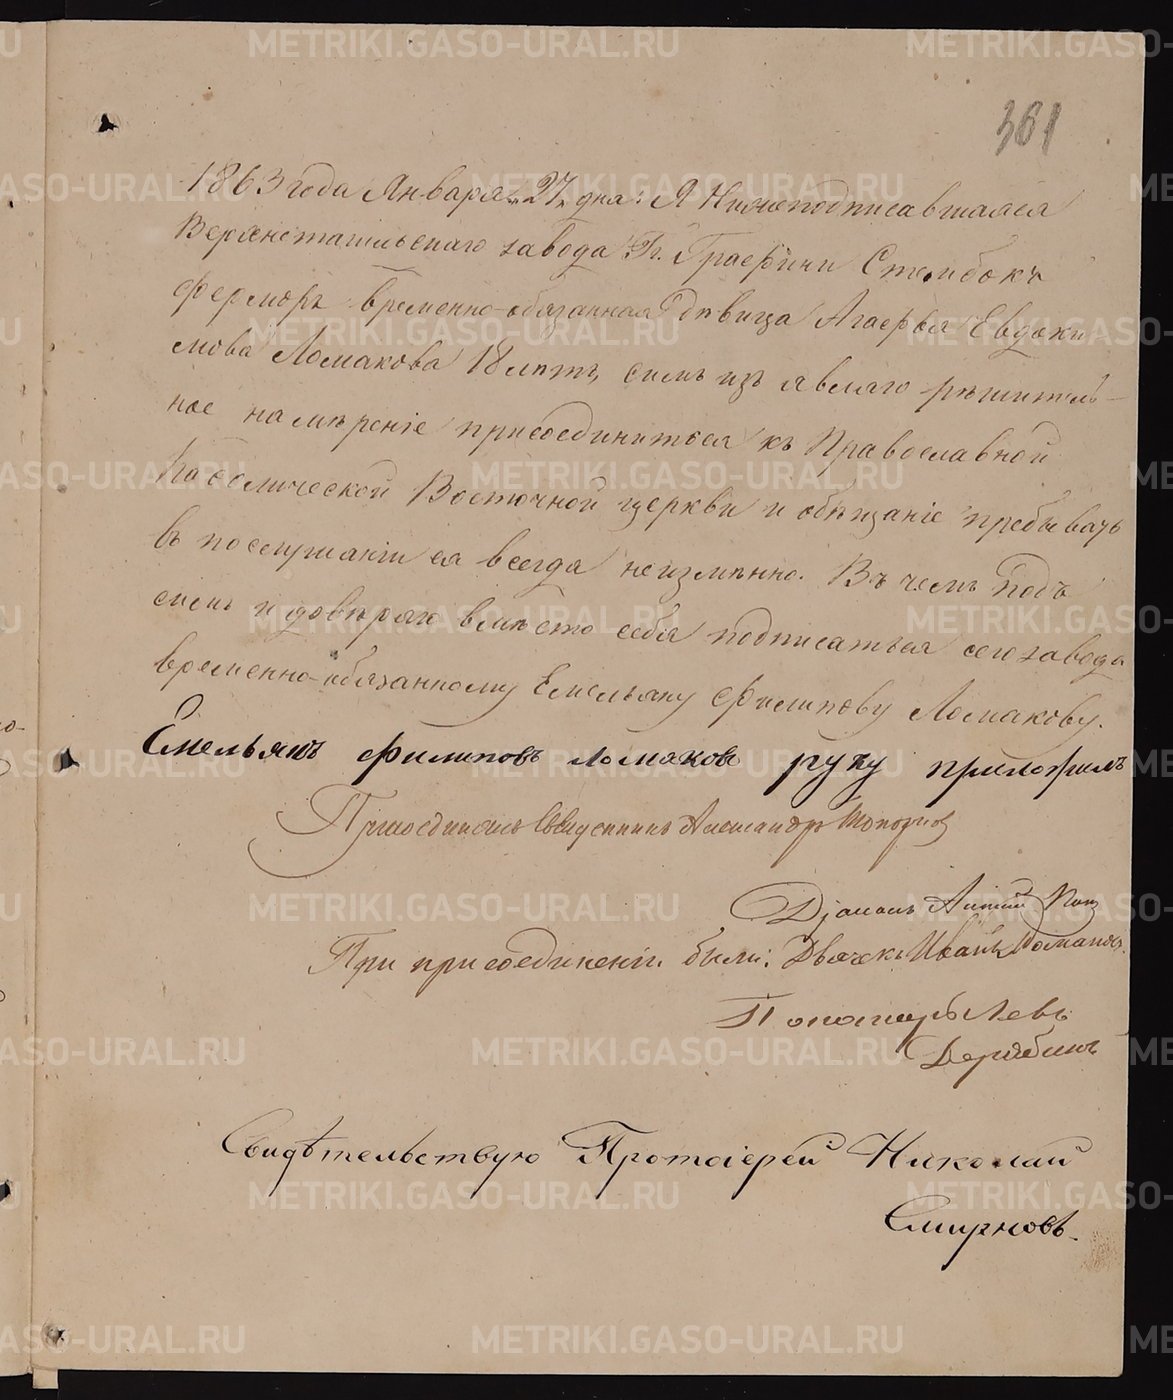 361
1863 года Января „27„ дня: Я Нижеподписавшаяся
Верхнетагильскаго завода Гг. Графини Стенбокъ
Ферморъ временно-обязанная девица Агафья Евдоки
мова Ломакова 18 летъ, симъ изъявляю решитель-
ное намѣреніе присоединиться къ Православной
Кафолической Восточной церкви и обѣщаніе пребывать
въ послушаніи ея всегда неизмѣнно. Въ чемъ подъ
симъ и довѣряю вмѣсто себя подписаться сего завода
временно-обязанному Емельяну Филипову Ломакову.
Емельянъ Филиповъ Ломаковъ руку приложилъ
Присоединялъ Священникъ Александръ Топорков
Діаконъ Поп
При присоединеніи были: Дьячекъ Иванъ Романовъ
Пономарь Левъ
Дерябинъ
Свидѣтельствую Протоіерей Николай
Смирновъ.
METRIKI.GASO-URAL.RU